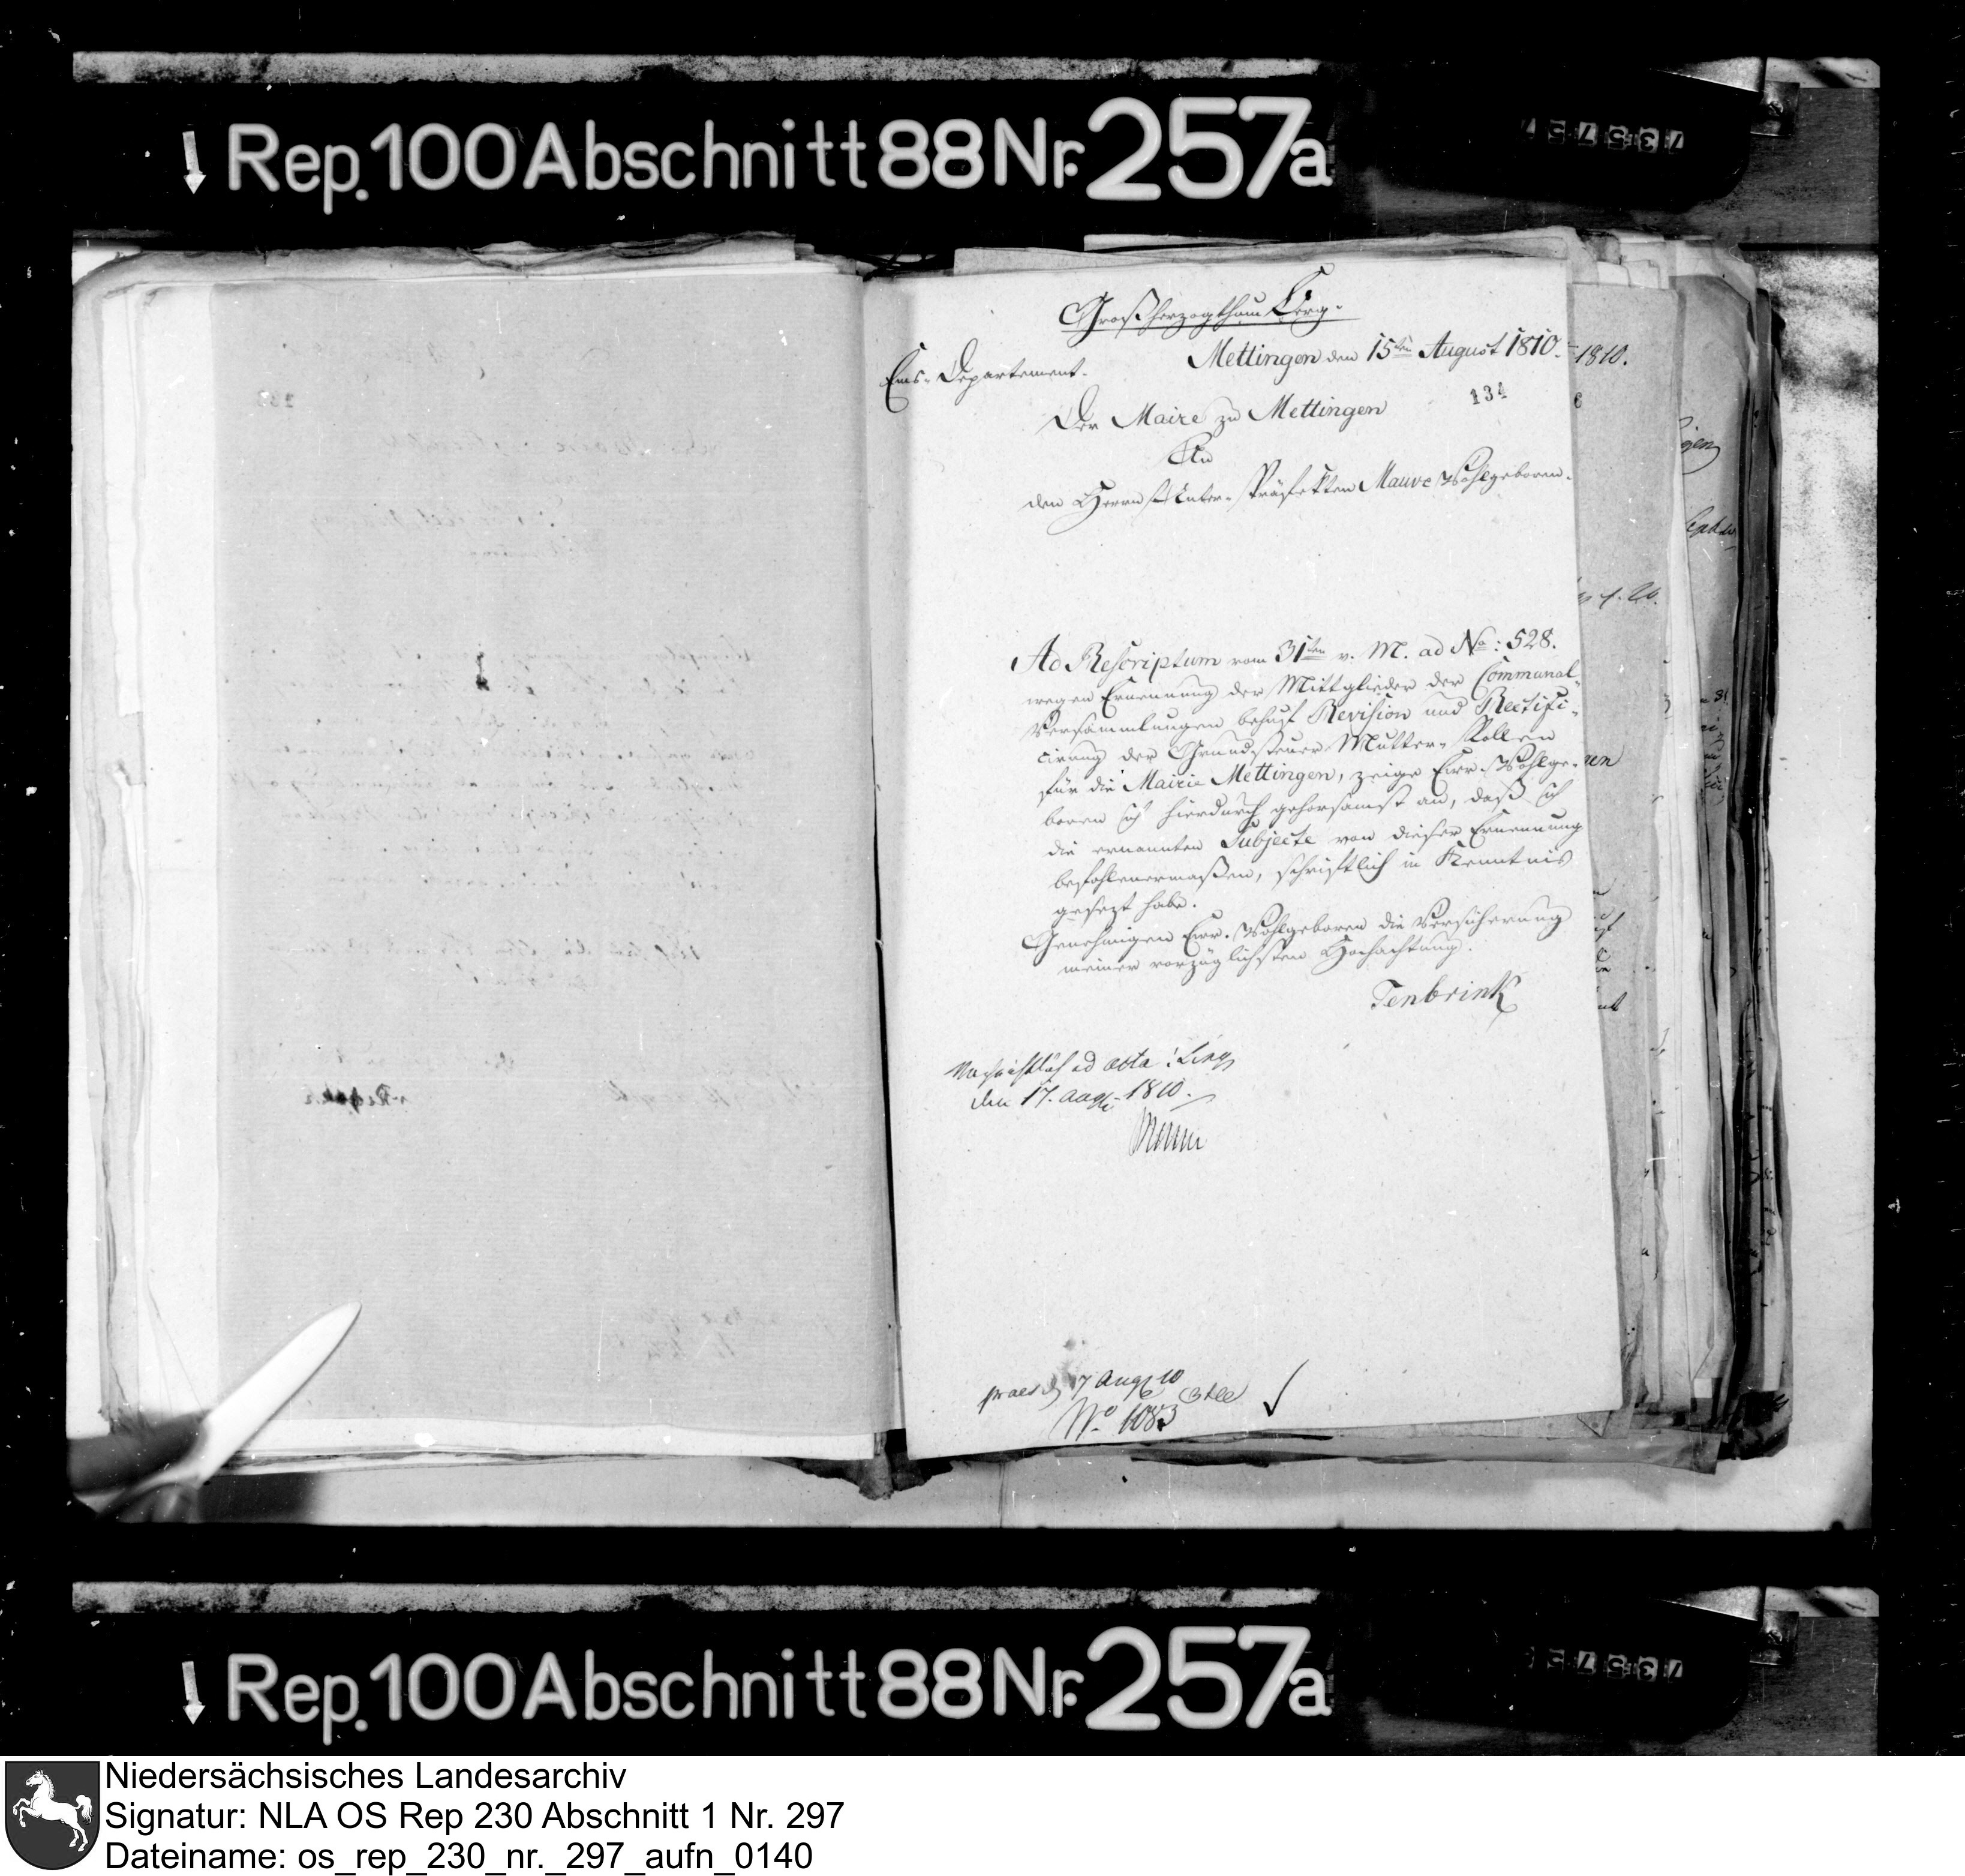 Rep. 100 Abschnitt 88 Nr. 257a
Großherzogthum Berg.
Ems-Departement.
Mettingen den 15ten August 1810.
1810.
134
Der Maire zu Mettingen
An
den Herrn Unter-Präfekten Mauve Wohlgeboren.
Ad Rescriptum vom 31ten v. M. ad No: 528.
wegen Ernennung der Mittglieder der Communal-
Versammlungen behuf Revision und Rectifi-
cirung der Grundsteuer Mutter-Rollen
für die Mairie Mettingen, zeige Ewr. Wohlge-
boren ich hierdurch gehorsamst an, daß ich
die ernannten Subjecte von dieser Ernennung
befohlenermaßen, schriftlich in Kenntnis
gesezt habe.
Genehmigen Ewr. Wohlgeboren die Versicherung
meiner vorzüglichsten Hochachtung.
Tenbrink
Nachrichtlich ad acta! Ling
den 17. Aug. 1810.
Mauve
praes 17 Aug 10
No 1083
Rep. 100 Abschnitt 88 Nr. 257a
Niedersächsisches Landesarchiv
Signatur: NLA OS Rep 230 Abschnitt 1 Nr. 297
Dateiname: os_rep_230_nr._297_aufn_0140